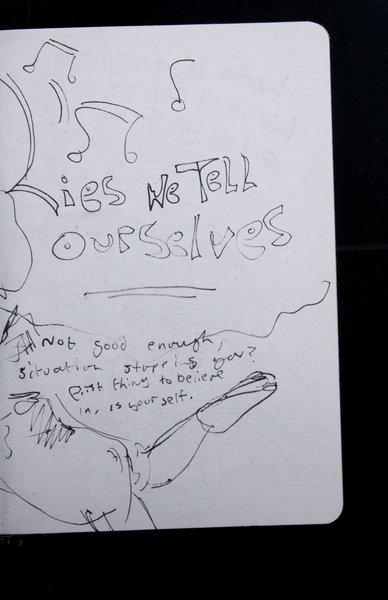 Lies We TeLL
ourselves
Not good enough,
situation you?
First thing to believe
in, is yourself.